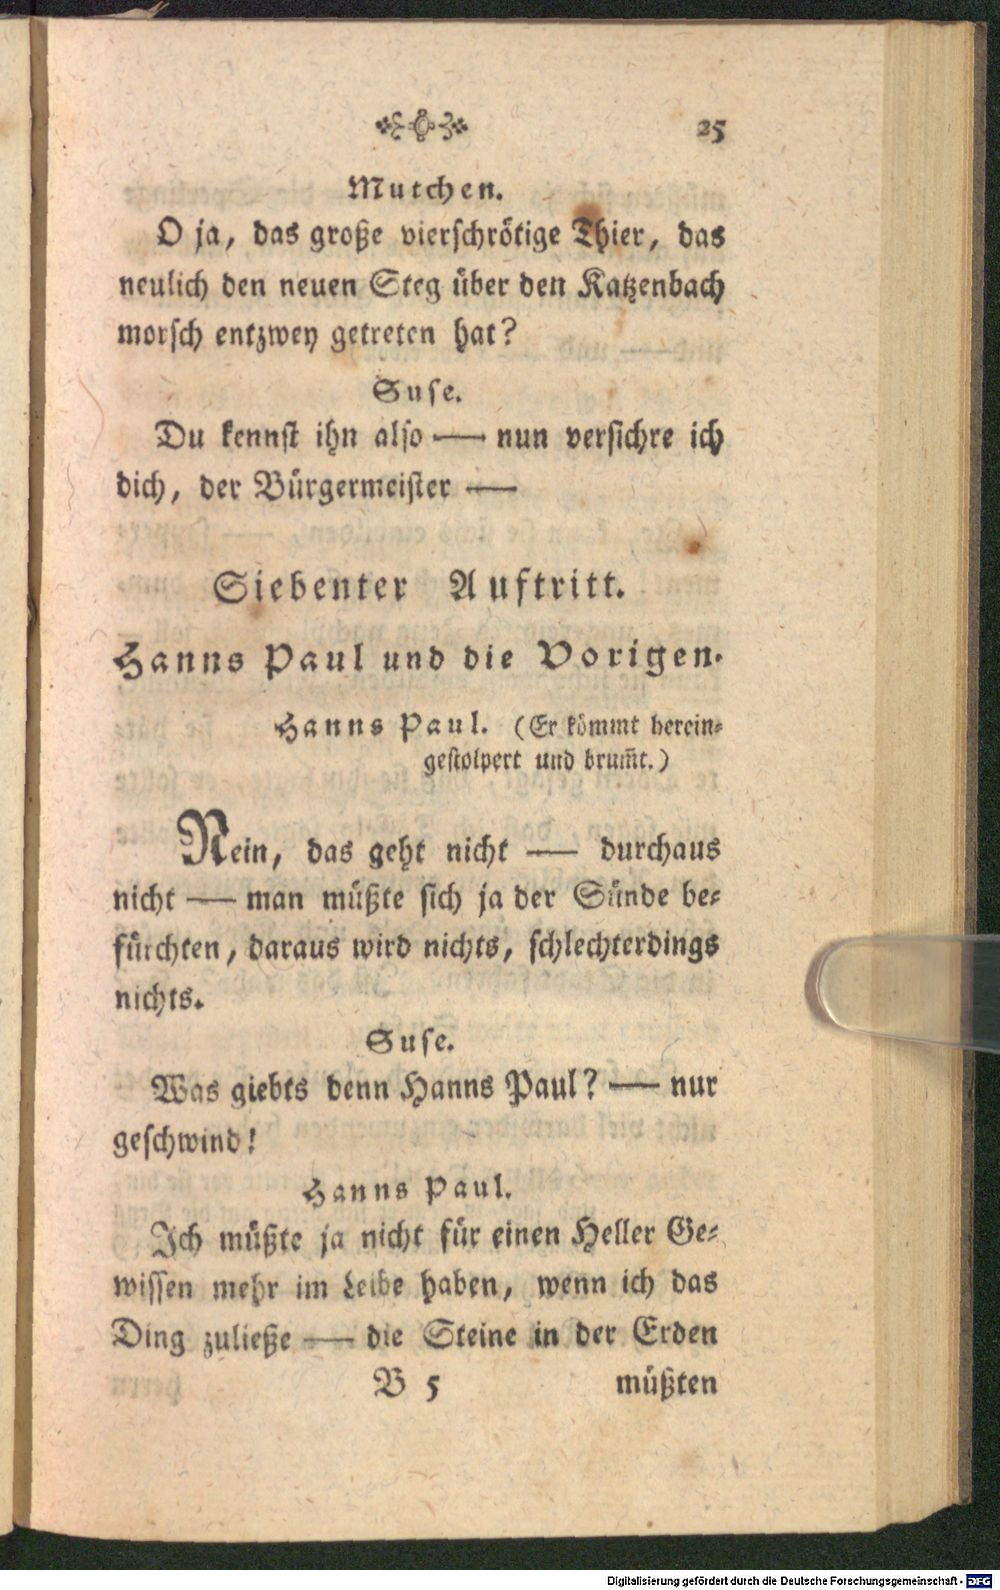 25
Mutchen.
O ja, das große vierschrötige Thier, das
neulich den neuen Steg über den Katzenbach
morsch entzwey getreten hat?
Suse.
Du kennst ihn also — nun versichre ich
dich, der Bürgermeister —
Siebenter Auftritt.
Hanns Paul und die Vorigen.
Hanns Paul. (Er kömmt herein-
gestolpert und brum̅t.)
Nein, das geht nicht — durchaus
nicht — man müßte sich ja der Sünde be-
fürchten, daraus wird nichts, schlechterdings
nichts.
Suse.
Was giebts denn Hanns Paul? — nur
geschwind!
Hanns Paul.
Ich müßte ja nicht für einen Heller Ge-
wissen mehr im Leibe haben, wenn ich das
Ding zuließe — die Steine in der Erden
B 5 müßten
Digitalisierung gefördert durch die Deutsche Forschungsgemeinschaft - DFG